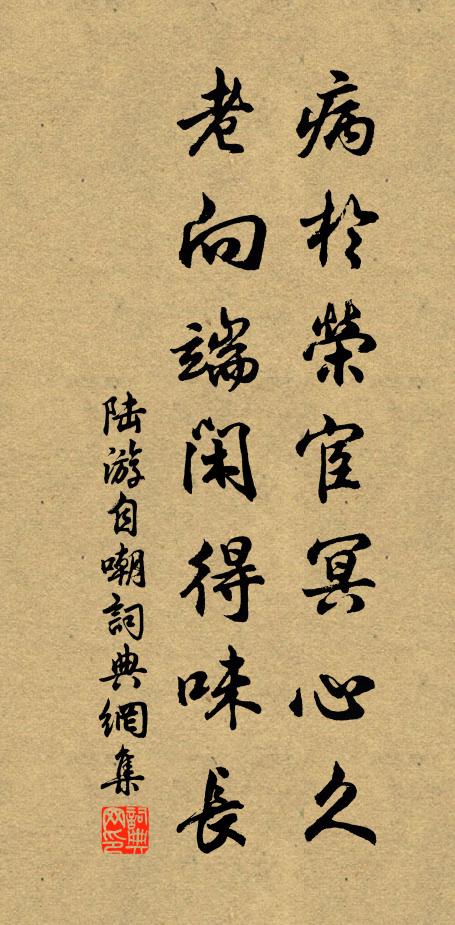 病於榮宦冥心久
老向端閑得味長
陆游自嘲詞典網集
詞典网印